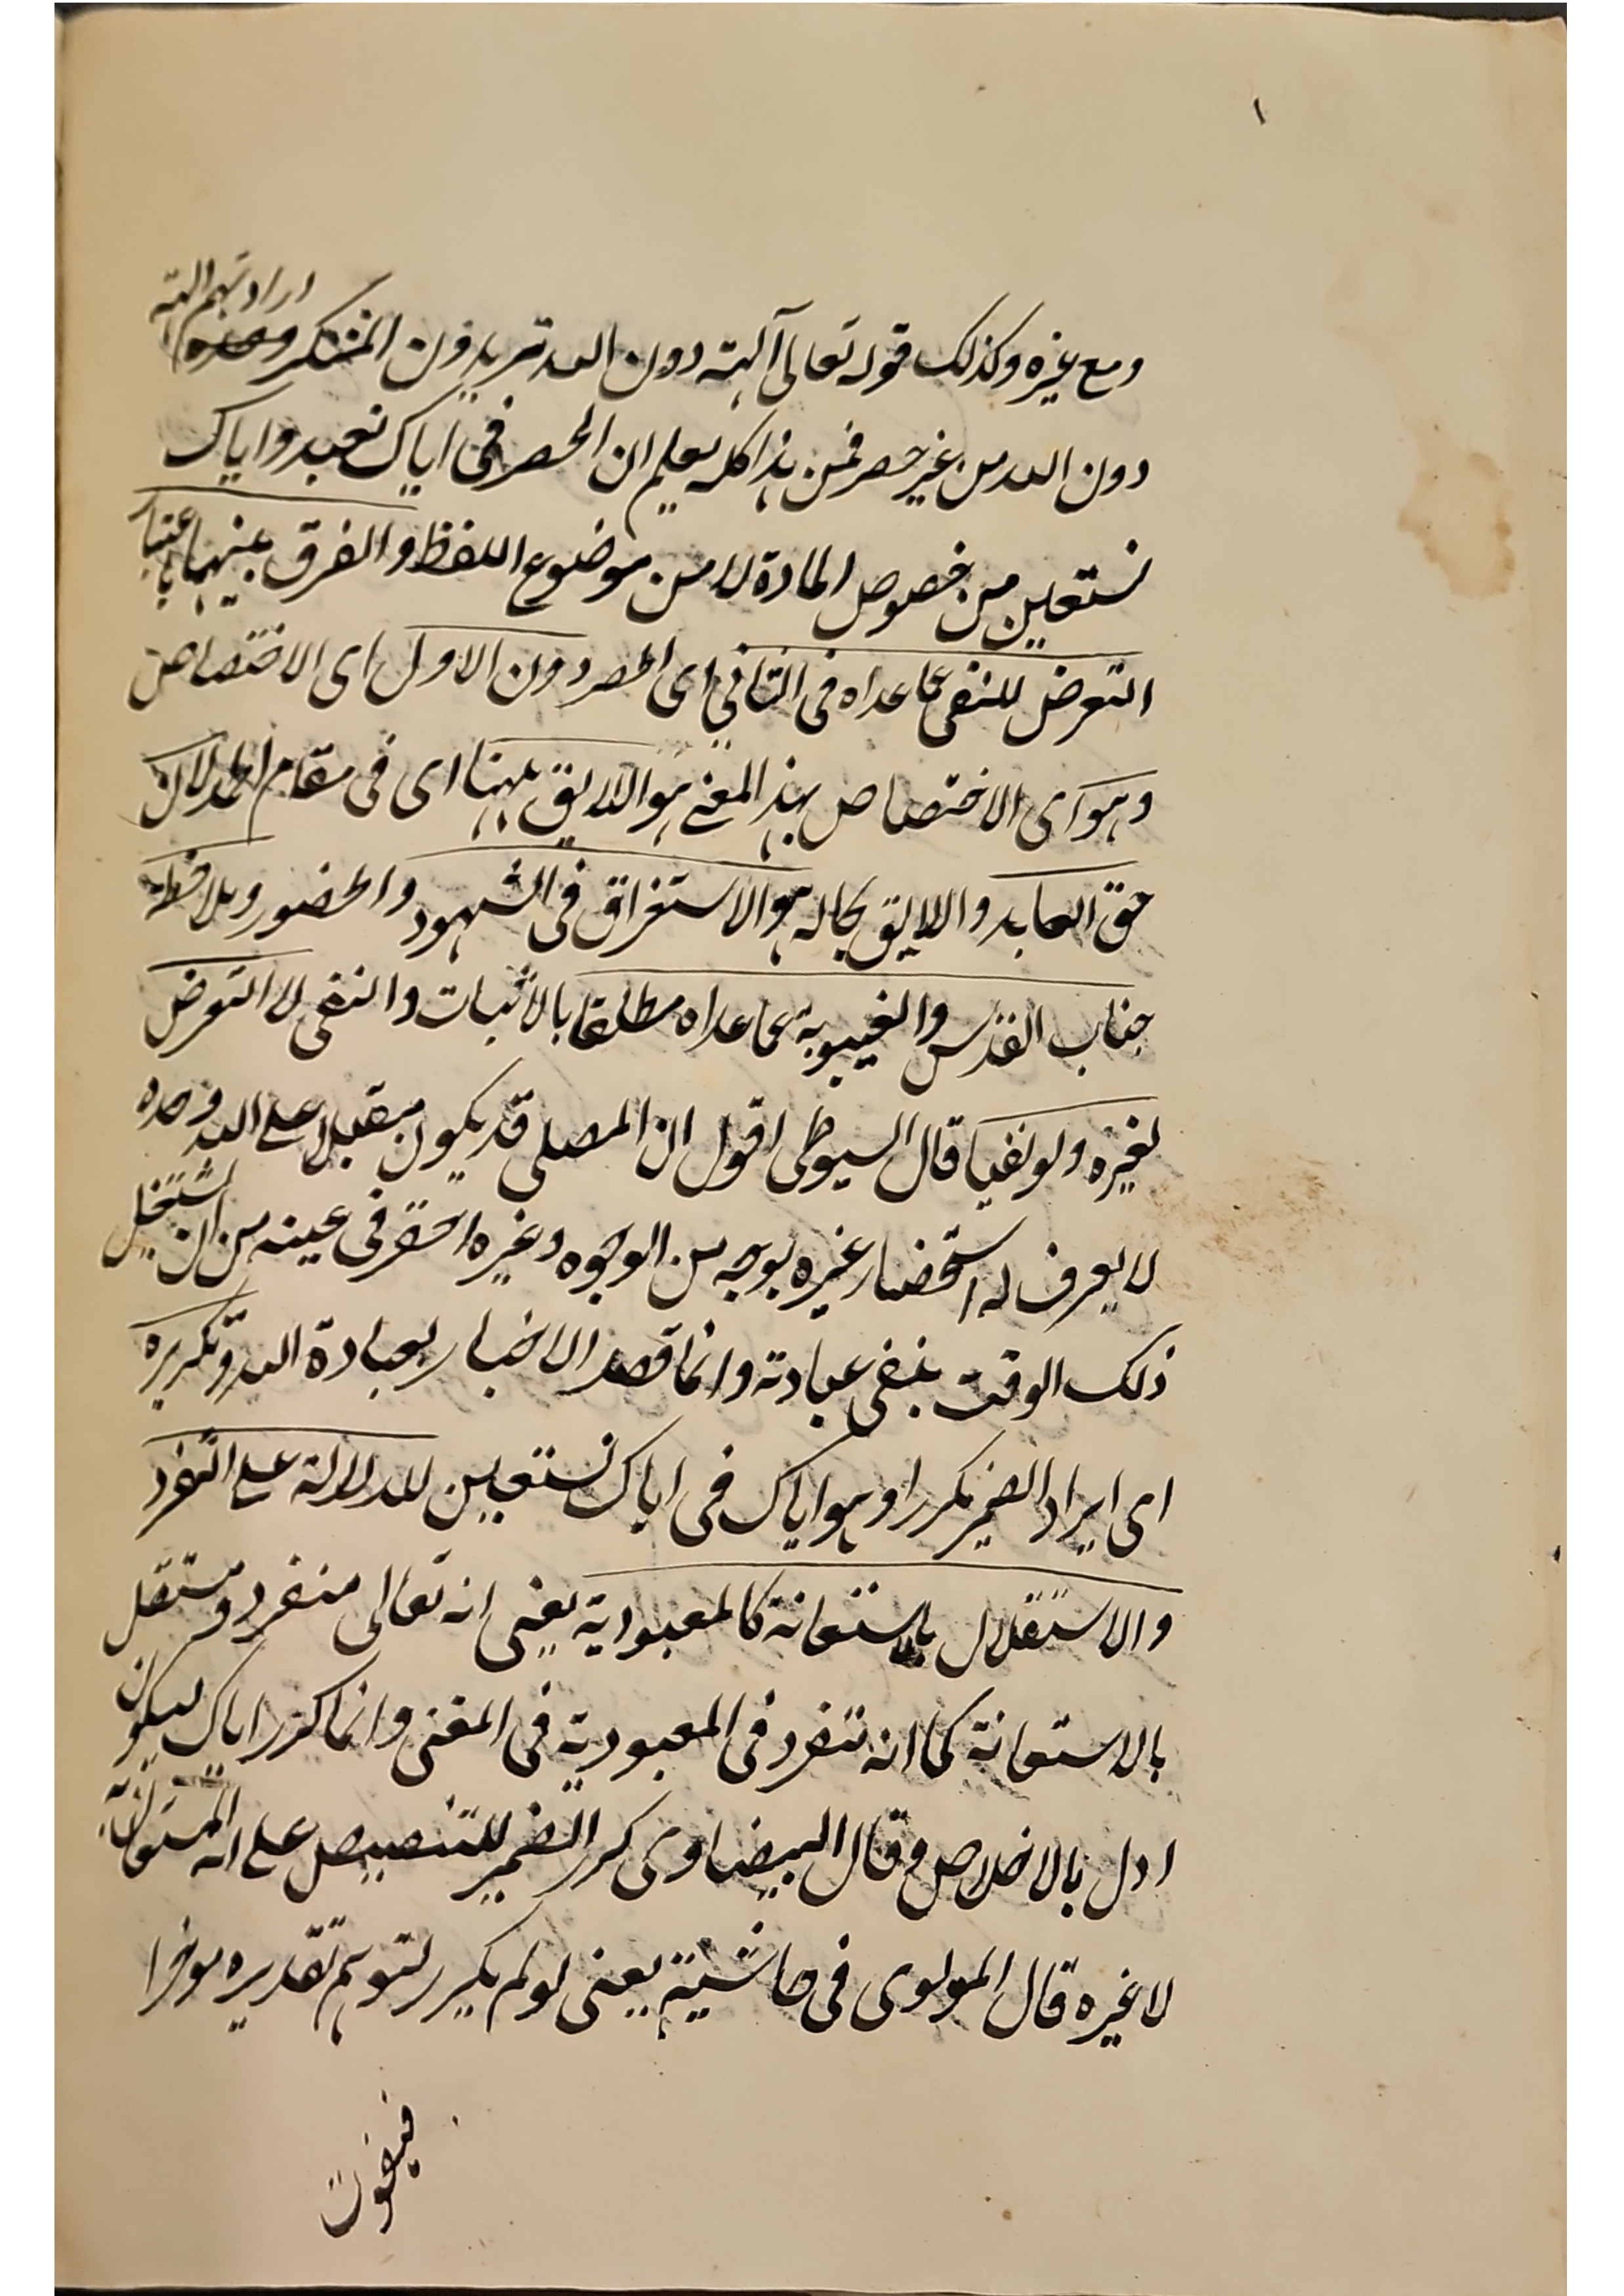 ١
ارادتهم الهة
ومع غيره وكذلك قوله تعالى آلهة دون الله تريدون المنكر
دون الله من غير حصر فمن هذا كله يعلم ان الحصر في اياك نعبد واياك
نستعين من خصوص المادة لا من موضوع اللفظ والفرق بينهما باعتبار
التعرض للنفي عما عداه في الثاني اى الحصر دون الاول اى الاختصاص
وهو اى الاختصاص بهذ المعنے هو اللايق ههنا اى فى مقام الحمد لان
حق العابد واللايق بحاله هو الاستغراق فى الشهود والحضور وملاحظة
جناب القدس والغيبوبة عما عداه مطلقا بالاثبات والنفى لا التعرض
لغيره ولو نفيا قال السيوطى اقول ان المصلى قد يكون مقبلا على الله وحده
لا يعرف له استحضار غيره بوجه من الوجوه وغيره احقر فى عينه من ان يشتغل
ذلك الوقت بنفى عبادته وانما قصد الاخبار بعبادة الله وتكريره
اى ايراد الضمير مكررا وهو اياك فى اياك نستعين للدلالة على التفرد
والاستقلال بالاستعانة كالمعبودية يعنى انه تعالى منفرد ومستقل
بالاستعانة كما انه تنفرد فى المعبودية فى المعنى وانما كرر اياك ليكون
ادل بالاخلاص وقال البيضاوى كرر الضمير للتنصيص على انه المستعان به
لا غيره قال المولوى فى حاشيته يعنى لو لم يكرر لتوهم تقديره موخرا
فيفوت